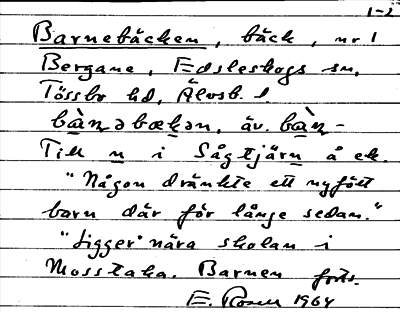 1-2
Barnebäcken, bäck, nr 1
Bergane, Edsleskogs sn,
Tössbo hd, Älvsb. l.
bànəbækən, äv. bàn-
Till n i Sågtjärn å ek.
"Någon dränkte ett nyfött
barn där för länge sedan."
"Ligger nära skolan i
Mosstaka. Barnen forts.
E. Rosen 1964